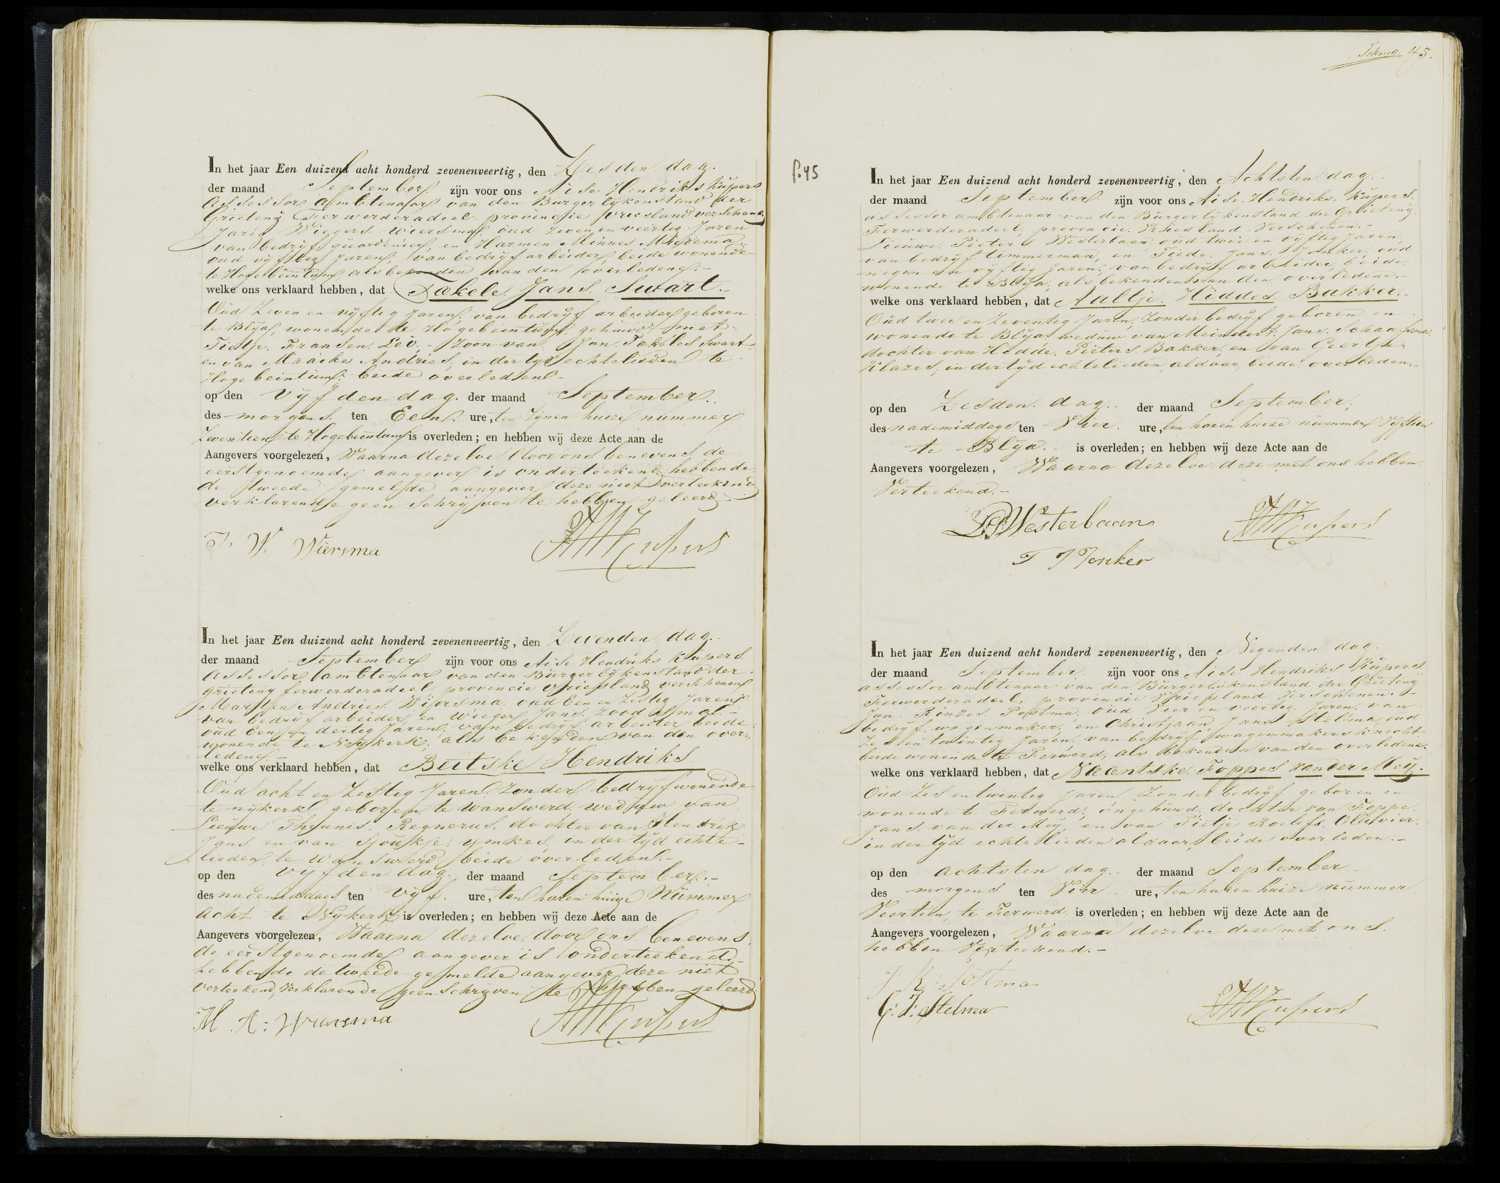 In het jaar Een duizend acht honderd zevenenveertig, den Zesden dag.
der maand September zijn voor ons Aise Hendriks Kuipers
Assessor ambtenaar van den Burgerlijkenstand der
Grieteny Ferwerderadeel provincie Vriesland verschenen
Jarig Wiegers Wiersma oud zeven en veertig Jaren
van bedrijf en Harmen Minnes
oud vyftig Jaren, van bedryf arbeider, beide wonende
te Hogebeintum als bekenden van den overledene.-
welke ons verklaard hebben, dat Takele Jans Swart.-
Oud Zeven en vyftig Jaren, van bedryf arbeider geboren
te Blya, wonende te Hogebeintum gehuwd met
Fransen Zoon van Jan Takeles Swart
en van Maaike Andries, in der tyd echtelieden te
Hogebeintum, beide overleden.-
op den vyfden dag. der maand September.
des morgens ten Een ure, ten zynen huize nummer
Zeventien te Hogebeintum is overleden; en hebben wij deze Acte aan de
Aangevers voorgelezen, Waarna dezelve door ons benevens de
eerstgenoemde aangever is onderteekend, hebbende
de tweede gemelde aangever deze niet verteekend
verklarende geen Schryven te hebben geleerd.-
J. W. Wiersma AHKuipers
In het jaar Een duizend acht honderd zevenenveertig, den Zevenden dag.
der maand September zijn voor ons Aise Hendriks Kuipers
Assessor ambtenaar van den Burgerlykenstand der
grieteny ferwerderadeel, provincie Vriesland verschenen
Marten Andries Wiersma oud en Zestig Jaren
van bedryf arbeider en Wieger Jans
oud en dertig Jaren, van bedryf arbeider beide
wonende te Nykerk, als bekenden van den over-
ledene.-
welke ons verklaard hebben, dat Beitske Hendriks
Oud acht en Zestig Jaren Zonder bedryf wonende
te nykerk geboren te Wanswerd weduwe van
Lieuwe Theunis Regnerus, dochter van Hendrik
Jans en van Sjoukje ymkes, in der tyd echte-
lieden te Wanswerd, beide overleden.-
op den vyfden dag. der maand September.-
des nademiddags ten Vyf. ure, ten haren huize Nummer
acht te Nykerk is overleden; en hebben wij deze Acte aan de
Aangevers voorgelezen, Waarna dezelve door ons benevens
de eerstgenoemde aangever is onderteekend,
hebbende de tweede gemelde aangever deze niet
verteekend, verklarende geen Schryven te hebben geleerd
M. A: Wiersma AHKuipers
f.45
45.
In het jaar Een duizend acht honderd zevenenveertig, den Achtsten dag.
der maand September zijn voor ons Aise Hendriks Kuipers
assessor ambtenaar van den Burgerlykenstand der Grieteny
Ferwerderadeel, provincie Vriesland Verschenen.-
Lieuwe Pieters Westerbaan oud twee en vyftig jaren
van bedryf timmerman, en Jans Jonker oud
negen en vyftig jaren, van bedryf arbeider, beide
wonende te Blya, als bekenden van den overledene.-
welke ons verklaard hebben, dat Aaltje Hiddes Bakker.-
Oud twee en Zeventig Jaren, Zonder bedryf geboren en
wonende te Blya, weduwe van Meindert Jans Schaafsma
dochter van Hidde Pieters Bakker, en van Geertje
Klazes, in der tyd echtelieden aldaar, beide overleden.-
op den Zesden dag.. der maand September,
des nademiddags ten Vier ure, ten haren huize nummer Vyftien
te Blya.- is overleden; en hebben wij deze Acte aan de
Aangevers voorgelezen, Waarna dezelve deze met ons hebben
Verteekend.-
L.P.Westerbaan AHKuipers
T J Jonker
In het jaar Een duizend acht honderd zevenenveertig, den Negenden dag.
der maand September zijn voor ons Aise Hendriks Kuipers
assessor ambtenaar van den Burgerlykenstand der Grieteny
Ferwerderadeel, provincie Vriesland Verschenen.-
Jan oud Vier en veertig Jaren, van
bedryf wagenmaker, en Christjaan Jans Stelma, oud
en twintig Jaren, van bedryf wagenmakersknecht
beide wonende te Ferwerd, als bekenden van den overledene.
welke ons verklaard hebben, dat Naentske Foppes van der Meij.
Oud Zes en twintig Jaren, Zonder bedryf geboren en
wonende te Ferwerd, ongehuwd, dochter van Foppe
Jans van der Meij, en van Pietje Roelofs Olivier
in der tyd echtelieden aldaar, beide overleden.-
op den achtsten dag.. der maand September
des morgens ten Vier ure, ten haren huize nummer
Veertien, te Ferwerd is overleden; en hebben wij deze Acte aan de
Aangevers voorgelezen, Waarna dezelve deze met ons
hebben Verteekend.-
C: J: Stelma AHKuipers